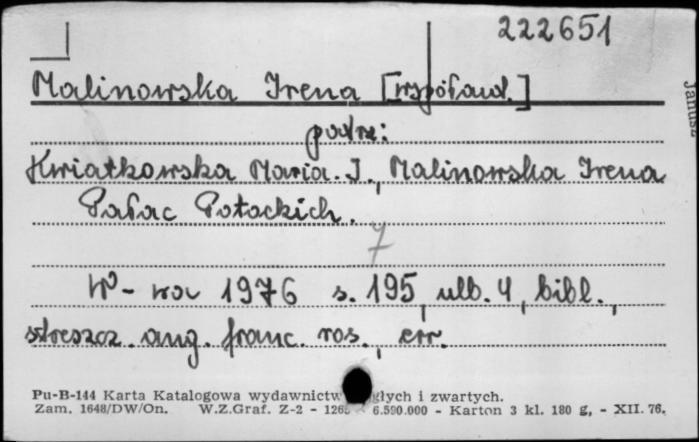 222651
Malinowska Irena [współaut.]
podrz:
Kwiatkowska Maria.I., Malinowska Irena
Pałac Potockich.
7
W-wa 1976 s. 195, ulb. 4, bibl.,
streszcz. ang. franc. ros., err.
Pu-B-144 Karta Katalogowa wydawnictw głych i zwartych.
Zam. 1648/DW/On. W.Z.Graf. Z-2 - 6.590.000 - Karton 3 kl. 180 g, - XII. 76.
Janusz